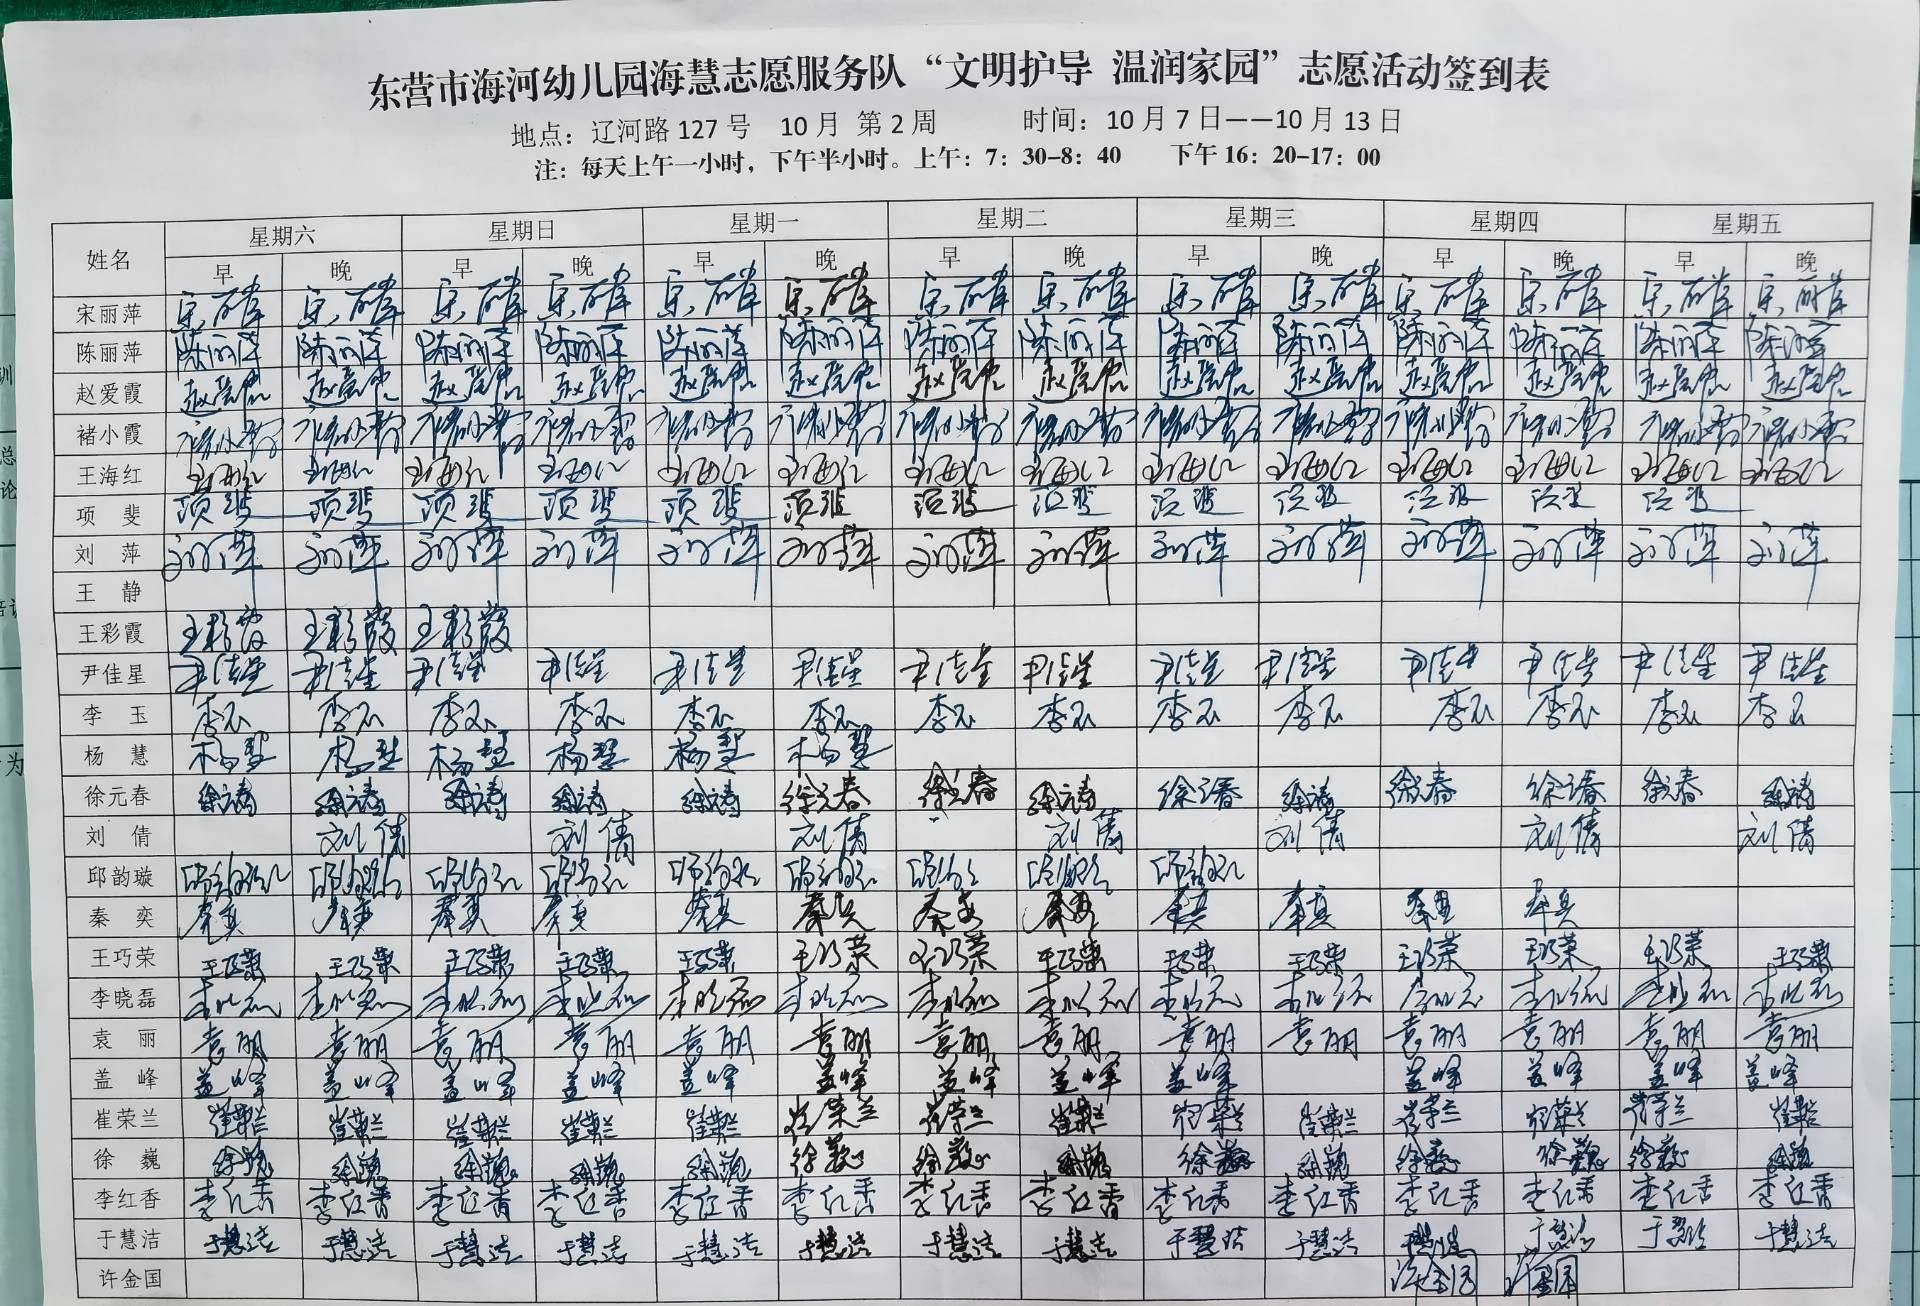 东营市海河幼儿园海慧志愿服务队“文明护导 温润家园”志愿活动签到表
地点：辽河路 127 号 10 月 第 2 周 时间：10 月 7 日——10 月 13 日
注：每天上午一小时，下午半小时。上午：7：30-8：40 下午 16：20-17：00
姓名 星期六 星期日 星期一 星期二 星期三 星期四 星期五
早 晚 早 晚 早 晚 早 晚 早 晚 早 晚 早 晚
宋丽萍 宋丽萍 宋丽萍 宋丽萍 宋丽萍 宋丽萍 宋丽萍 宋丽萍 宋丽萍 宋丽萍 宋丽萍 宋丽萍 宋丽萍 宋丽萍 宋丽萍
陈丽萍 陈丽萍 陈丽萍 陈丽萍 陈丽萍 陈丽萍 陈丽萍 陈丽萍 陈丽萍 陈丽萍 陈丽萍 陈丽萍 陈丽萍 陈丽萍 陈丽萍
赵爱霞 赵爱霞 赵爱霞 赵爱霞 赵爱霞 赵爱霞 赵爱霞 赵爱霞 赵爱霞 赵爱霞 赵爱霞 赵爱霞 赵爱霞 赵爱霞 赵爱霞
褚小霞 褚小霞 褚小霞 褚小霞 褚小霞 褚小霞 褚小霞 褚小霞 褚小霞 褚小霞 褚小霞 褚小霞 褚小霞 褚小霞 褚小霞
王海红 王海红 王海红 王海红 王海红 王海红 王海红 王海红 王海红 王海红 王海红 王海红 王海红 王海红 王海红
项 斐 项斐 项斐 项斐 项斐 项斐 项斐 项斐 项斐 项斐 项斐 项斐 项斐 项斐
刘 萍 刘萍 刘萍 刘萍 刘萍 刘萍 刘萍 刘萍 刘萍 刘萍 刘萍 刘萍 刘萍 刘萍 刘萍
王 静
王彩霞 王彩霞 王彩霞 王彩霞
尹佳星 尹佳星 尹佳星 尹佳星 尹佳星 尹佳星 尹佳星 尹佳星 尹佳星 尹佳星 尹佳星 尹佳星 尹佳星 尹佳星 尹佳星
李 玉 李玉 李玉 李玉 李玉 李玉 李玉 李玉 李玉 李玉 李玉 李玉 李玉 李玉 李玉
杨 慧 杨慧 杨慧 杨慧 杨慧 杨慧 杨慧
徐元春 徐元春 徐元春 徐元春 徐元春 徐元春 徐元春 徐元春 徐元春 徐元春 徐元春 徐元春 徐元春 徐元春 徐元春
刘 倩 刘倩 刘倩 刘倩 刘倩 刘倩 刘倩 刘倩
邱韵璇 邱韵璇 邱韵璇 邱韵璇 邱韵璇 邱韵璇 邱韵璇 邱韵璇 邱韵璇 邱韵璇
秦 奕 秦奕 秦奕 秦奕 秦奕 秦奕 秦奕 秦奕 秦奕 秦奕 秦奕 秦奕 秦奕
王巧荣 王巧荣 王巧荣 王巧荣 王巧荣 王巧荣 王巧荣 王巧荣 王巧荣 王巧荣 王巧荣 王巧荣 王巧荣 王巧荣 王巧荣
李晓磊 李晓磊 李晓磊 李晓磊 李晓磊 李晓磊 李晓磊 李晓磊 李晓磊 李晓磊 李晓磊 李晓磊 李晓磊 李晓磊 李晓磊
袁 丽 袁丽 袁丽 袁丽 袁丽 袁丽 袁丽 袁丽 袁丽 袁丽 袁丽 袁丽 袁丽 袁丽 袁丽
盖 峰 盖峰 盖峰 盖峰 盖峰 盖峰 盖峰 盖峰 盖峰 盖峰 盖峰 盖峰 盖峰 盖峰
崔荣兰 崔荣兰 崔荣兰 崔荣兰 崔荣兰 崔荣兰 崔荣兰 崔荣兰 崔荣兰 崔荣兰 崔荣兰 崔荣兰 崔荣兰 崔荣兰 崔荣兰
徐 巍 徐巍 徐巍 徐巍 徐巍 徐巍 徐巍 徐巍 徐巍 徐巍 徐巍 徐巍 徐巍 徐巍 徐巍
李红香 李红香 李红香 李红香 李红香 李红香 李红香 李红香 李红香 李红香 李红香 李红香 李红香 李红香 李红香
于慧洁 于慧洁 于慧洁 于慧洁 于慧洁 于慧洁 于慧洁 于慧洁 于慧洁 于慧洁 于慧洁 于慧洁 于慧洁 于慧洁 于慧洁
许金国 许金国 许金国